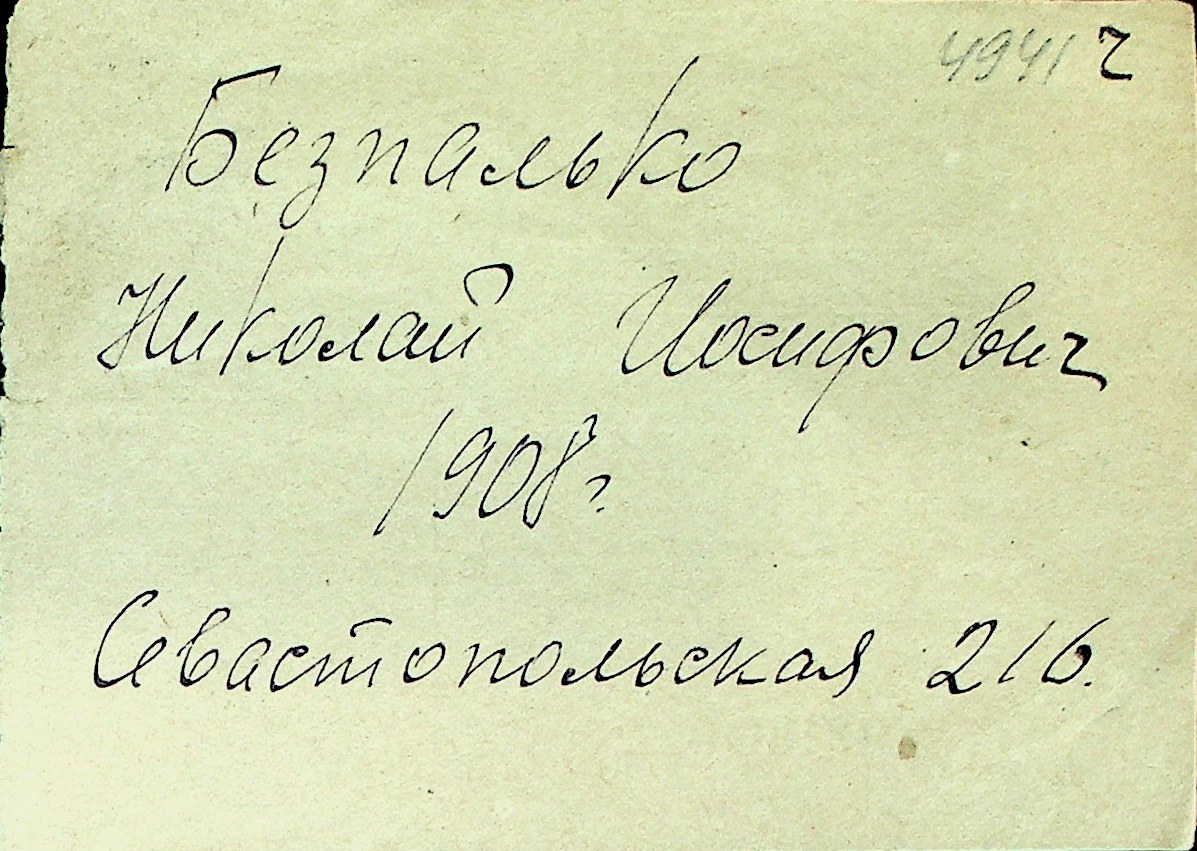 4941 ч
Безпалько
Николай Иосифович
1908 г.
Севастопольская 216.